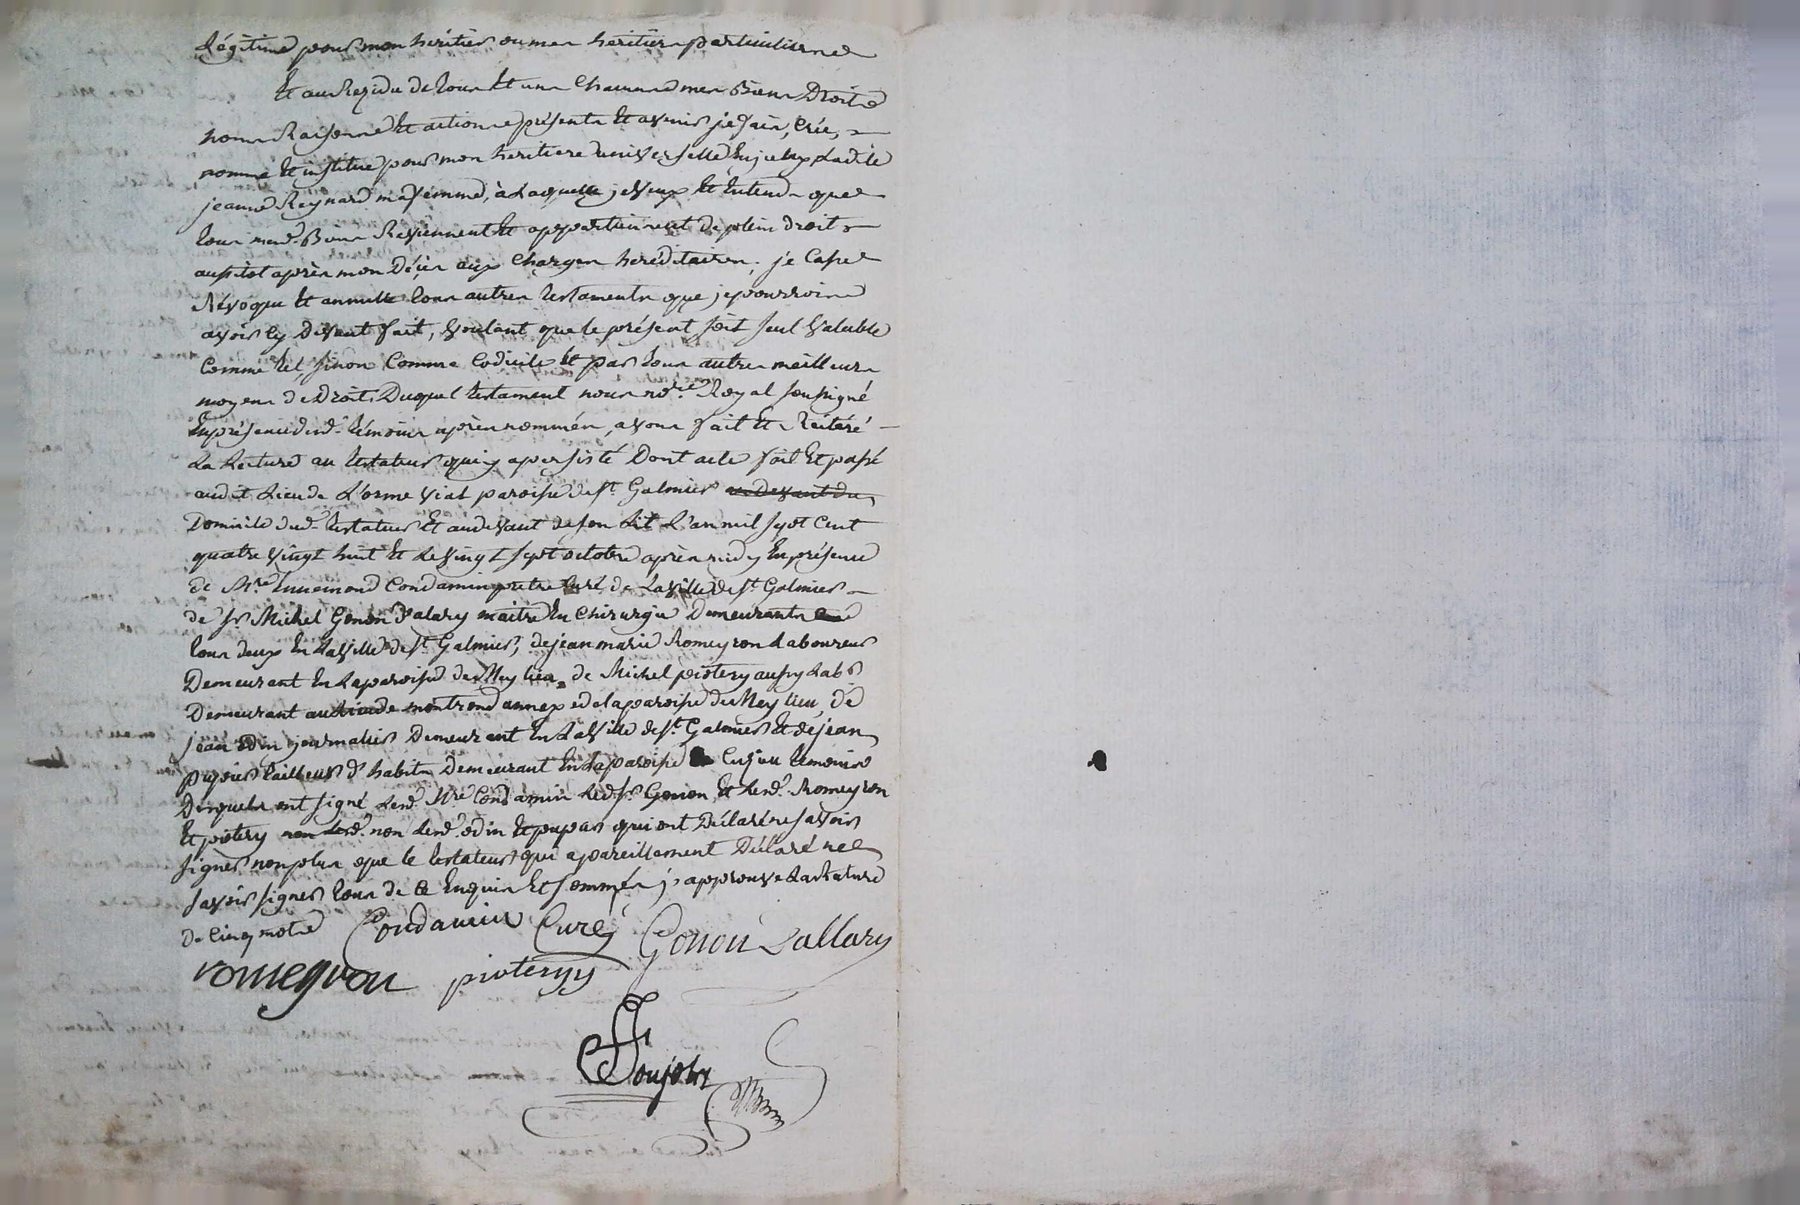 légitime pour mon heritier ou mes heritiers particuliers
Et au Rezidu de tous Et uns Chacuns mes Biens Droits
noms Raisons Et actions présents Et avenir je fais, Crée,
nomme Et institue pour mon heritiere universelle En jceux Ladite
jeanne Reynard ma femme, à Laquelle je veux Et Entends que
tous mesd. Biens Reviennent Et appartiennent de plein droit
aussitot après mon Décès aux Charges heréditaires. je Casse
Révoque Et annulle tous autres testaments que je pourrois
avoir Cy Devant fait, voulant que le présent soit seul valable
Comme tel sinon Comme Codicile Et par tous autres meilleurs
moyens de Droit. Duquel testament nous no.re Royal soussigné
En présence desd. témoins après nommés, avons fait Et Réitéré
La Lecture au testateur qui y a persisté Dont acte fait Et passé
audit Lieu de L'orme viat paroisse de st. Galmier au devant du
Domicile dud. testateur Et au devant de son Lit L'an mil sept Cent
quatre vingt huit Et Le vingt sept octobre après midy En présence
de Mre. Ennemond Condamin pretre Curé de La ville de st. Galmier
de sr. Michel Gonon Valary maitre En Chirurgie Demeurants
tous deux En La ville de st. Galmier, de jean marie Romeyron Laboureur
Demeurant En La paroisse de Meylieu, de Michel pistery aussy Labr.
Demeurant au Lieu de montrond annexe de la paroisse de Meylieu, de
jean odin journalier Demeurant En La ville de st. Galmier Et de jean
pupier tailleur d'habits Demeurant En La paroisse de Cusieu temoins
Desquels ont signé Led. Mre. Condamin Led. sr. Gonon, Et Lesd. Romeyron
Et pistery non Lesd. odin Et pupier qui ont Déclaré ne savoir
signer non plus que le testateur qui a pareillement Déclaré ne
savoir signer tous de Ce Enquis Et sommés j'approuve La Rature
de Cinq mots
Condamin Curé Gonon Vallary
romeyron pioteryy
Boujoly